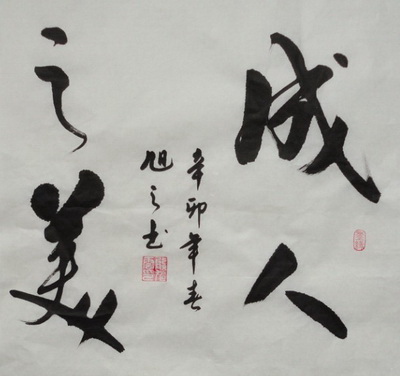 成人
之美
辛卯年春
旭之书